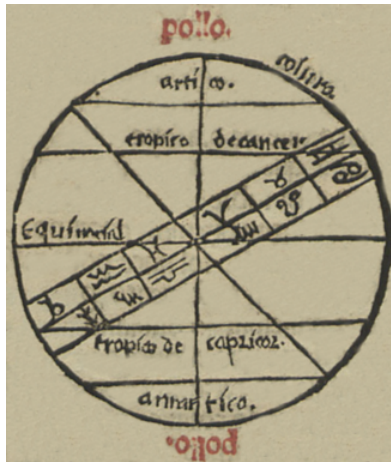 pollo.
colura
artico.
tropico decancer
Equinocial
tropico de capricor.
antartico.
pollo.